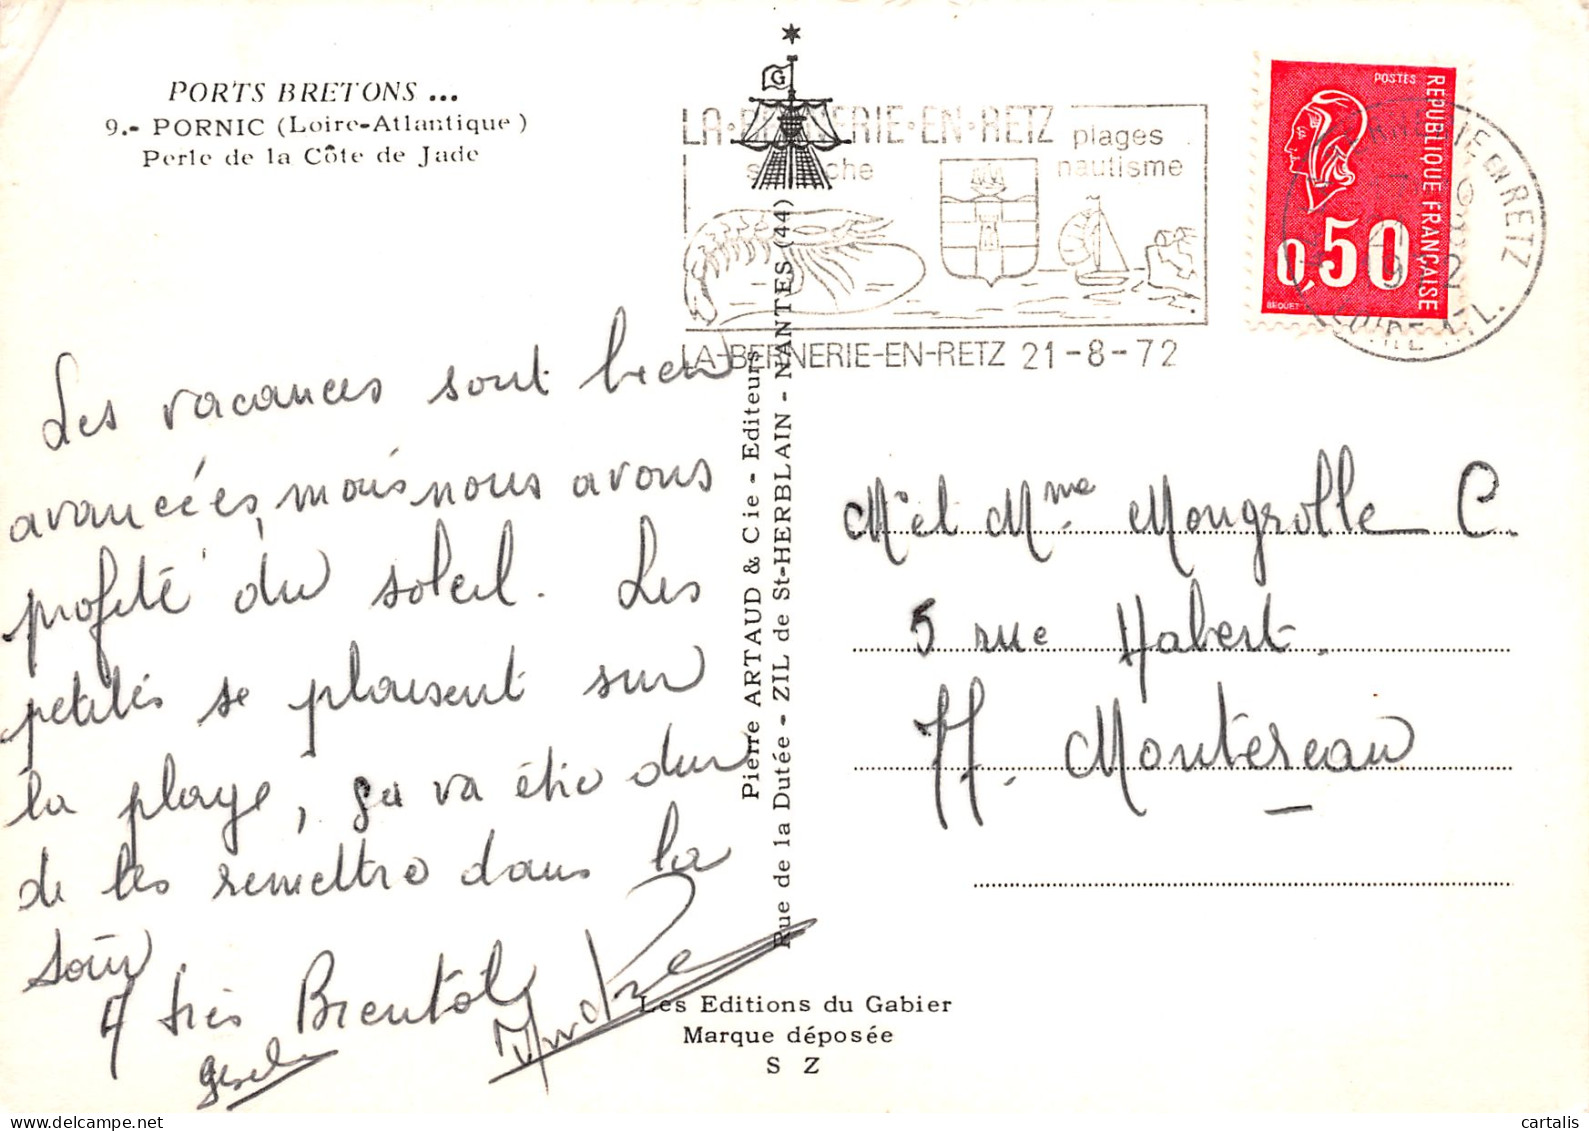 PORTS BRETONS ...
9.- PORNIC (Loire-Atlantique)
Perle de la Côte de Jade
G
LA BERNERIE EN RETZ
plages
nautisme
LA-BERNERIE-EN-RETZ 21-8-72
POSTES
REPUBLIQUE FRANÇAISE
0,50
BEQUET
EN RETZ
LOIRE ATL.
Les vacances sont bien
avancées, mais nous avons
profité du soleil. Les
petites se plaisent sur
la plage, ça va être dur
de les remettre dans la
soir
A très Bientôt
Pierre ARTAUD & Cie - Editeurs
Rue de la Dutée - ZIL de St-HERBLAIN - NANTES (44)
Mr et Mme Mongrolle C.
5 rue Habert.
77. Montereau
Les Editions du Gabier
Marque déposée
S Z
cartalis